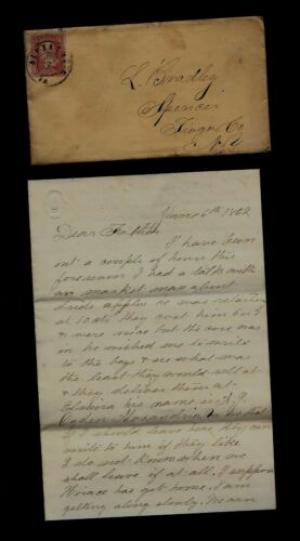 L. Bradley
Spencer
Tioga Co
N. Y.
6th 1862
Dear
I have been
out a couple of hours this
forenoon I had a talk with
an market man about
apples he was
at 10 cts they cost him
& were nice but the core was
in he wished me to write
to the boys & see what was
the least they would sell at
& they deliver them at
Elmira his name is
Ogden
if I should leave here they can
write to him if they like
I do not know when we
shall leave if at all. I suppose
Horace has got home. I am
getting along slowly. We are